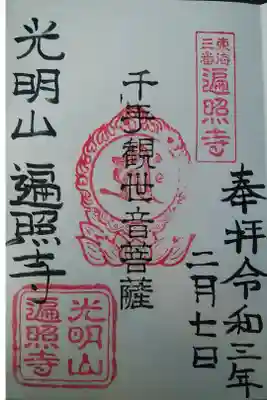 奉拝令和三年
二月七日
東海
三番
遍照寺
千手観世音菩薩
光明山 遍照寺
光明山
遍照寺